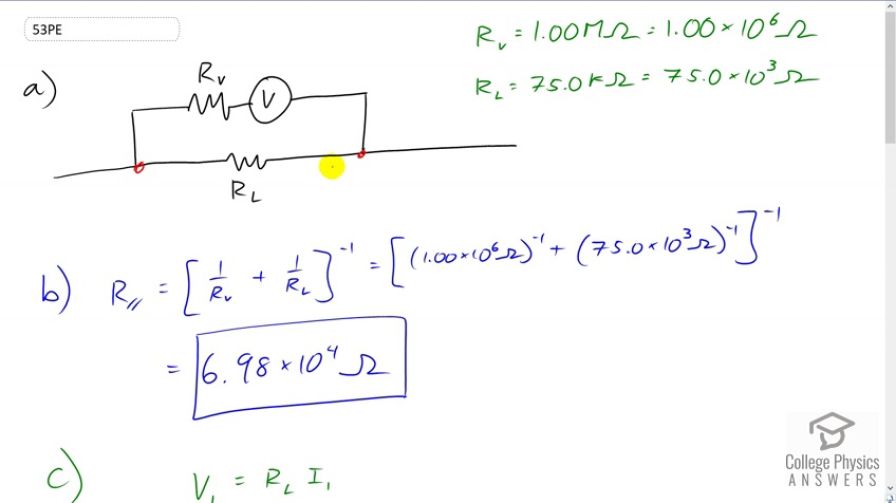 53PE
R_V = 1.00 MΩ = 1.00 × 10⁶ Ω
R_L = 75.0 kΩ = 75.0 × 10³ Ω
a)
R_V
V
R_L
b) R_// = [1/R_V + 1/R_L]⁻¹ = [(1.00×10⁶Ω)⁻¹ + (75.0×10³Ω)⁻¹]⁻¹
= 6.98 × 10⁴ Ω
c) V₁ = R_L I₁
College Physics
ANSWERS